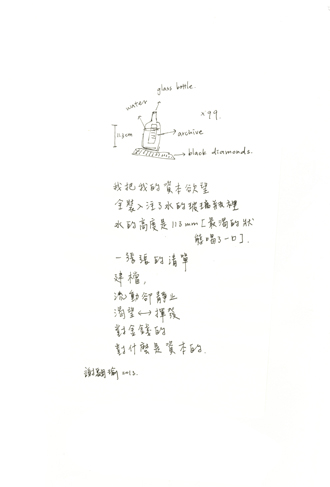 glass bottle.
water
×99.
113mm
archive
black diamonds.
我把我的資本欲望
全裝入注了水的玻璃瓶裡
水的高度是113mm[最滿的狀
態喝了一口].
一張張的清單
建檔,
流動卻靜止
渴望⟷揮發
對金錢的
對什麼是資本的.
謝 瑜 2013.